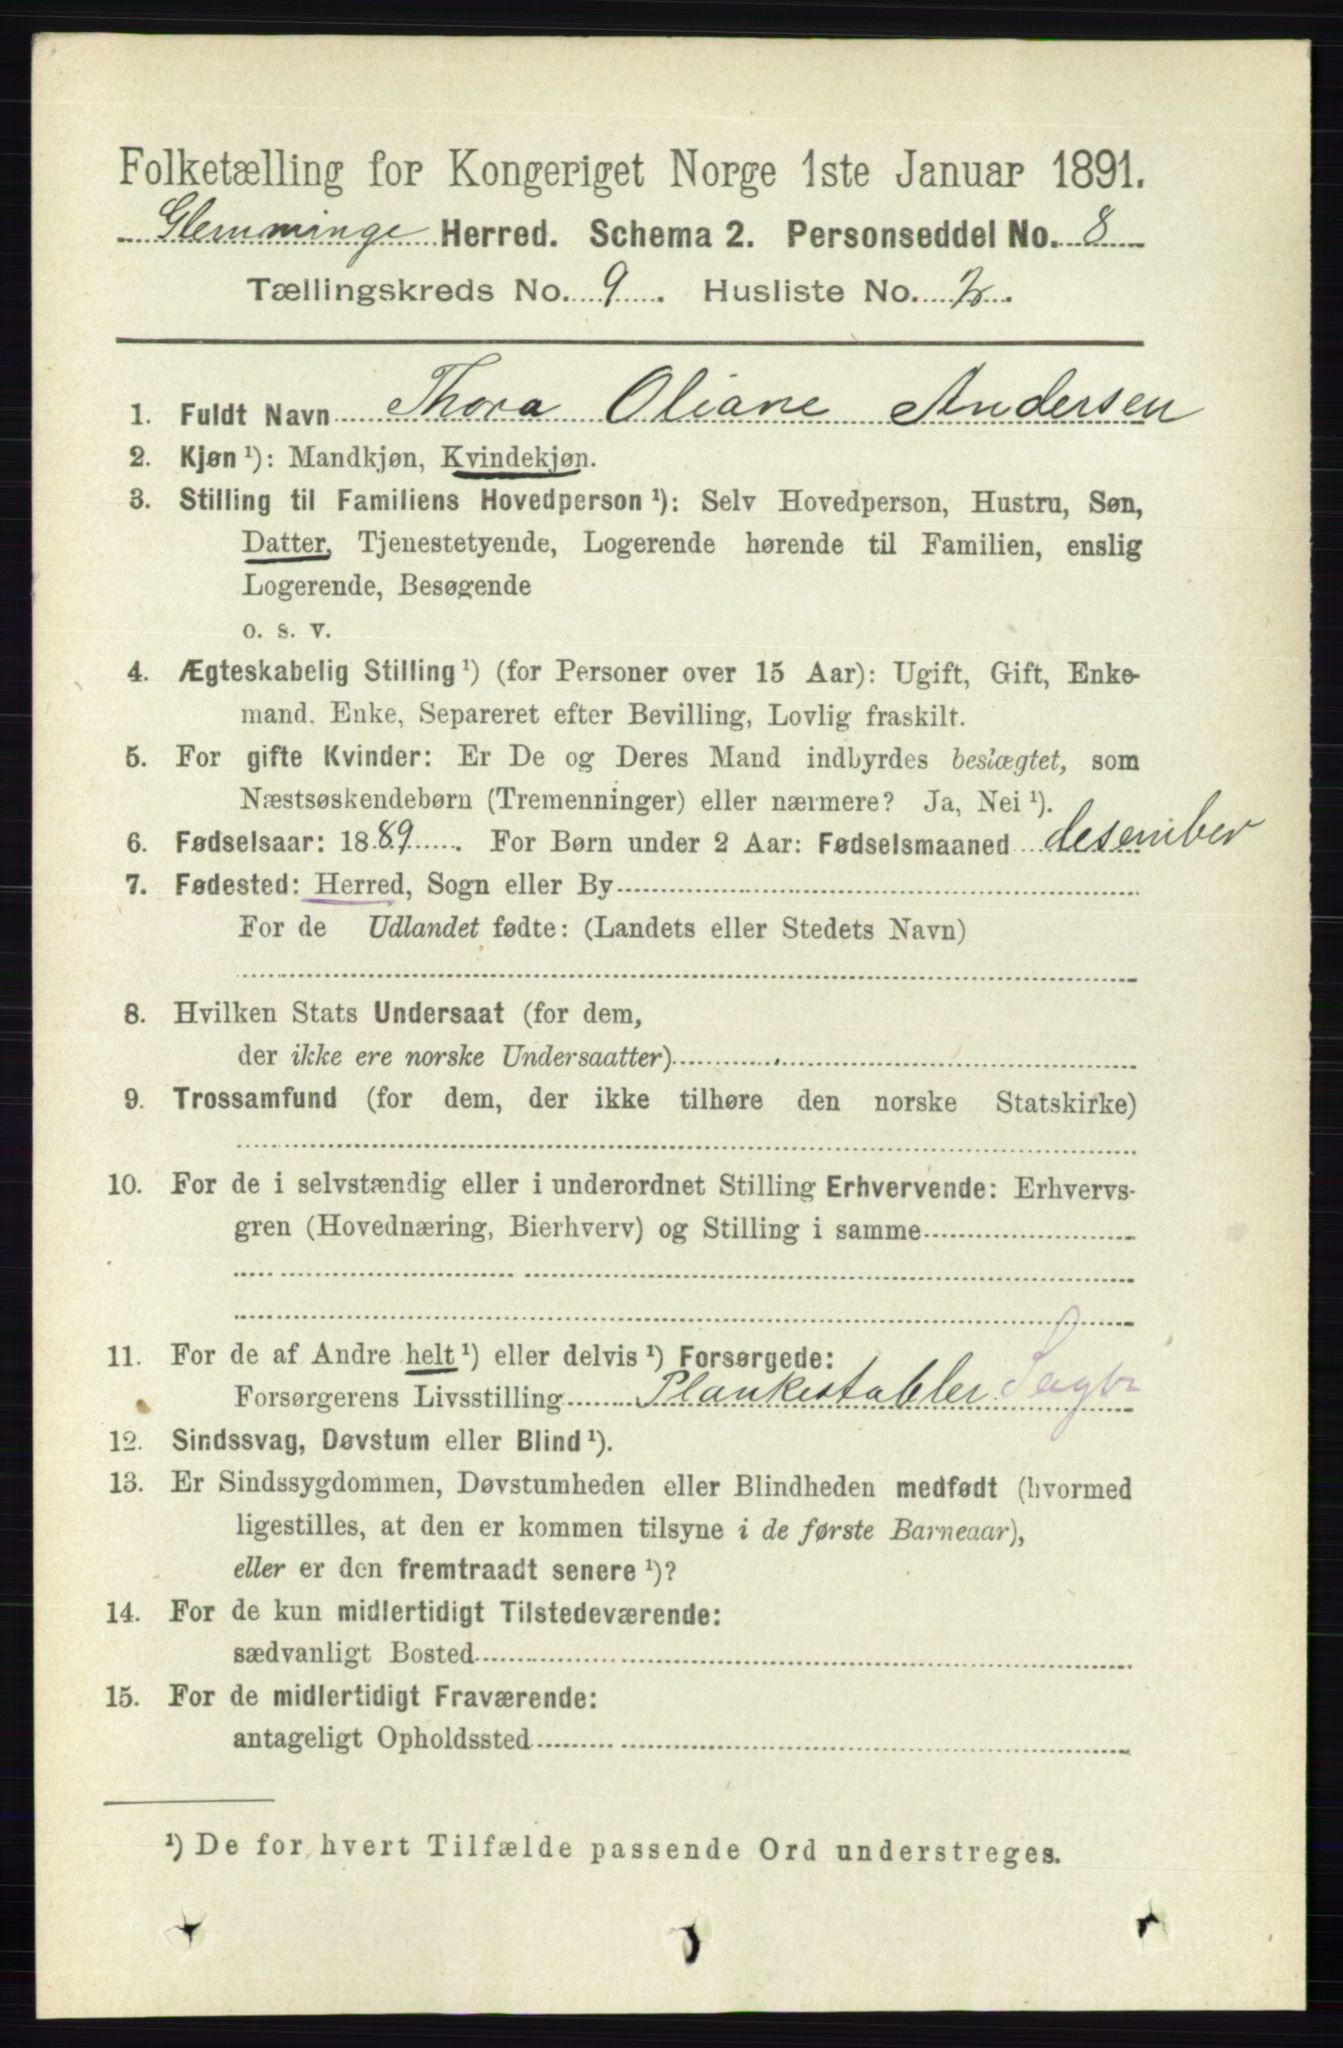 Folketælling for Kongeriget Norge 1ste Januar 1891.
Glemminge Herred. Schema 2. Personseddel No. 8
Tællingskreds No. 9. Husliste No. 2.
1. Fuldt Navn Thora Oliane Andersen
2. Kjøn ¹): Mandkjøn, Kvindekjøn.
3. Stilling til Familiens Hovedperson ¹): Selv Hovedperson, Hustru, Søn,
Datter, Tjenestetyende, Logerende hørende til Familien, enslig
Logerende, Besøgende
o. s. v.
4. Ægteskabelig Stilling ¹) (for Personer over 15 Aar): Ugift, Gift, Enke-
mand, Enke, Separeret efter Bevilling, Lovlig fraskilt.
5. For gifte Kvinder: Er De og Deres Mand indbyrdes beslægtet, som
Næstsøskendebørn (Tremenninger) eller nærmere? Ja, Nei ¹).
6. Fødselsaar: 1889. For Børn under 2 Aar: Fødselsmaaned desember
7. Fødested: Herred, Sogn eller By
For de Udlandet fødte: (Landets eller Stedets Navn)
8. Hvilken Stats Undersaat (for dem,
der ikke ere norske Undersaatter)
9. Trossamfund (for dem, der ikke tilhøre den norske Statskirke)
10. For de i selvstændig eller i underordnet Stilling Erhvervende: Erhvervs-
gren (Hovednæring, Bierhverv) og Stilling i samme
11. For de af Andre helt ¹) eller delvis ¹) Forsørgede:
Forsørgerens Livsstilling Plankestabler Sagbr
12. Sindssvag, Døvstum eller Blind ¹).
13. Er Sindssygdommen, Døvstumheden eller Blindheden medfødt (hvormed
ligestilles, at den er kommen tilsyne i de første Barneaar),
eller er den fremtraadt senere ¹)?
14. For de kun midlertidigt Tilstedeværende:
sædvanligt Bosted
15. For de midlertidigt Fraværende:
antageligt Opholdssted
¹) De for hvert Tilfælde passende Ord understreges.